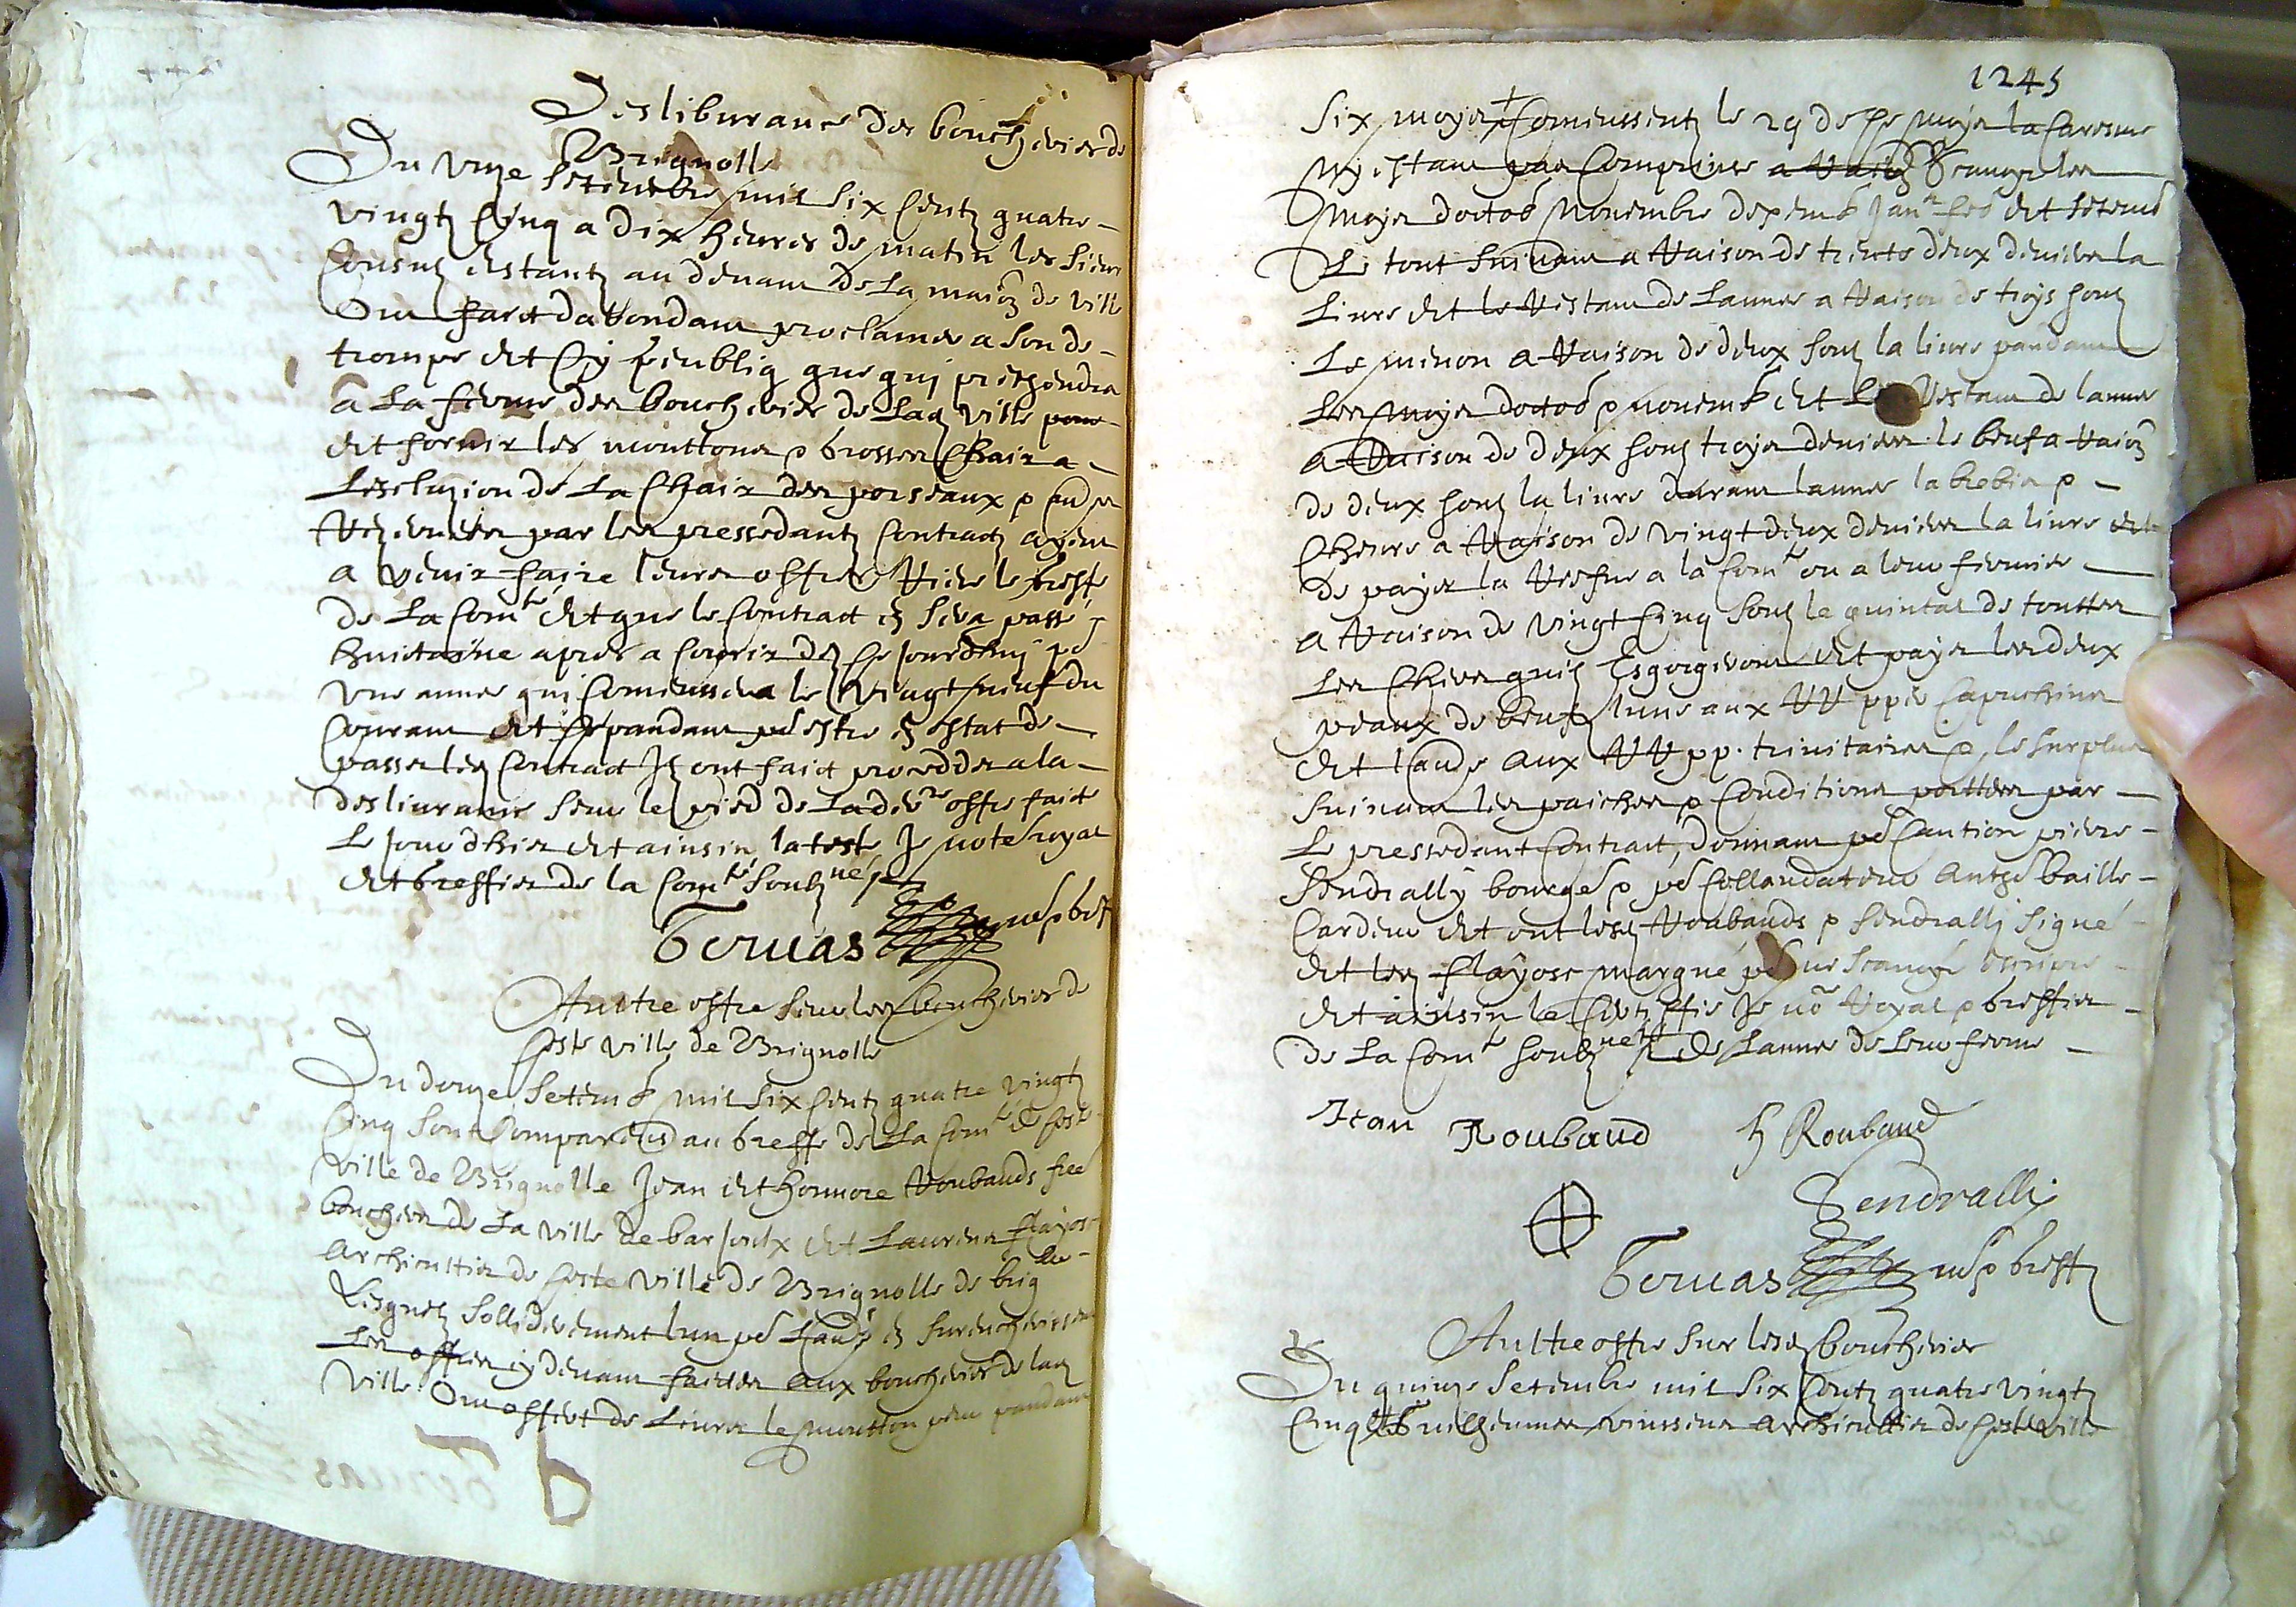 Desliburance des boucheries de
Brignolle
Du unze setembre mil six centz quatre
vingtz cinq a dix heures de matin les sieurs
consulz estantz au devant de la maiõ de ville
ont faict dabondant proclamer a son de
trompe et cry peubliq que qui prethendra
a la ferme des boucheries de lad ville pour
et fornir les mouttons & brosses chair a
lesclusion de la chair des porseaux &
par les pressedantz contractz ayent
a venir faire leurs offres riere le breffe
de la comte et que le contract en sera passé
huictaine apres a comprir de ce jourdhuj po
une annee qui comenssera le vingt neuf du
courant et cepandant po estre en estat de
passer led contract Ilz ont faict proceddera la
deslivrance sur le pied de la derre offre faicte
le jour dhier et ainsin latteste Je note royal
et breffier de la comte soubzné
Gervas no & bref
Aultre offre sur les boucheries de
ceste ville de Brignolle
Du douze setemb mil six centz quatre vingtz
cinq sont comparus au breffe de la comte de ceste
ville de Brignolle Jean et honnore Roubauds fres
bouchers de la ville de barjoulx et Laurens flayosc
archieultier de ceste ville de Brignolle de brig lle
lesquelz sollideremant lun po laud en surencherissant
les offres cy devant faictes aux boucheries de lad
ville Ont offert de livrer le moutton pour pandant
1245
six moys comenssentz le 29 de ce moys la caresme
ny estant pas comprinse a raiõ scavoyr les
moys doctob novembre dexemb janr feb et setemb
le tout suivant a raison de trente deux deniers la
livre et le restant de lannee a raison de troys soulz
le menon a raison de deux soulz la livre pandant
les moys doctob & novemb et le restant de lannee
a raison de deux soulz troys deniers le beuf a raiõ
de deux soulz la livre durant lannee la brebis &
chevre a raison de vingt deux deniers la livre et
de payer la resfve a la comte ou a leur fermier
a raison de vingt cinq soulz le quintal de touttes
les chers quilz Esgorgeront et payer les deux
peaux de beufz lune aux RR ppes Capuchins
et laude aux RR pp. trinitaires & le surplus
suivant les paiches & conditions porttees par
le pressedant contract, donnant po caution pierre
Sendrally bourge & po collaudateur Anthe baille
cardeur et ont lesd Roubauds & Sendrally signé
et led flayosc marqué po ne scavoyr escrire
et ainsin le certiffie Je no Royal & breffier
de la comte soubzné de lannee de leur ferme
Jean Roubaud h Roubaud
Sendralli
Gervas no & breff
Aultre offre sur lesd boucheries
Du quinze setembre mil six centz quatre vingtz
cinq Guilheumes vinssens archieultier de ceste ville